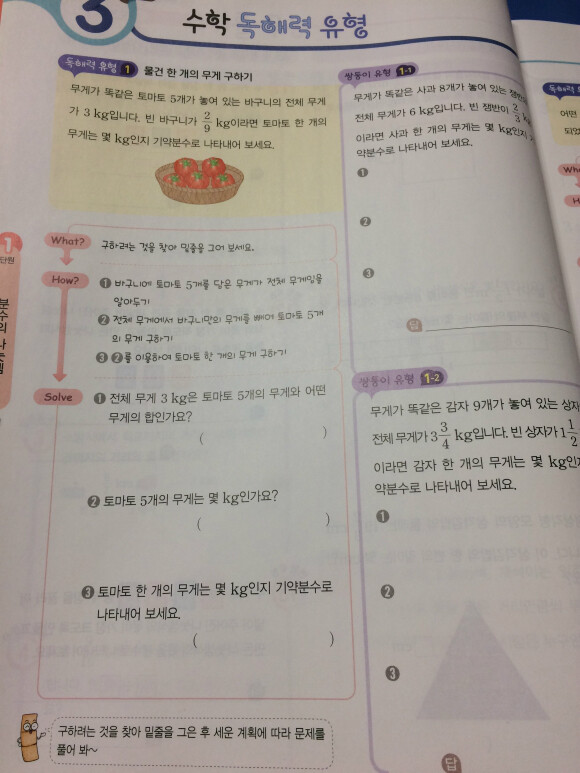 3
수학 독해력 유형
독해력 유형 1 물건 한 개의 무게 구하기
무게가 똑같은 토마토 5개가 놓여 있는 바구니의 전체 무게
가 3 kg입니다. 빈 바구니가 2/9 kg이라면 토마토 한 개의
무게는 몇 kg인지 기약분수로 나타내어 보세요.
What? 구하려는 것을 찾아 밑줄을 그어 보세요.
How? ❶ 바구니에 토마토 5개를 담은 무게가 전체 무게임을
알아두기
❷ 전체 무게에서 바구니만의 무게를 빼어 토마토 5개
의 무게 구하기
❸ ❷를 이용하여 토마토 한 개의 무게 구하기
Solve ❶ 전체 무게 3 kg은 토마토 5개의 무게와 어떤
무게의 합인가요?
( )
❷ 토마토 5개의 무게는 몇 kg인가요?
( )
❸ 토마토 한 개의 무게는 몇 kg인지 기약분수로
나타내어 보세요.
( )
구하려는 것을 찾아 밑줄을 그은 후 세운 계획에 따라 문제를
풀어 봐~
1
단원
분수의 나눗셈
쌍둥이 유형 1-1
무게가 똑같은 사과 8개가 놓여 있는 쟁반
전체 무게가 6 kg입니다. 빈 쟁반이 2/3 kg
이라면 사과 한 개의 무게는 몇 kg인지
약분수로 나타내어 보세요.
❶
❷
❸
답
쌍둥이 유형 1-2
무게가 똑같은 감자 9개가 놓여 있는 상자
전체 무게가 3 3/4 kg입니다. 빈 상자가 1 1/2
이라면 감자 한 개의 무게는 몇 kg인
약분수로 나타내어 보세요.
❶
❷
❸
답
독해력
어떤
되었
Wh
H